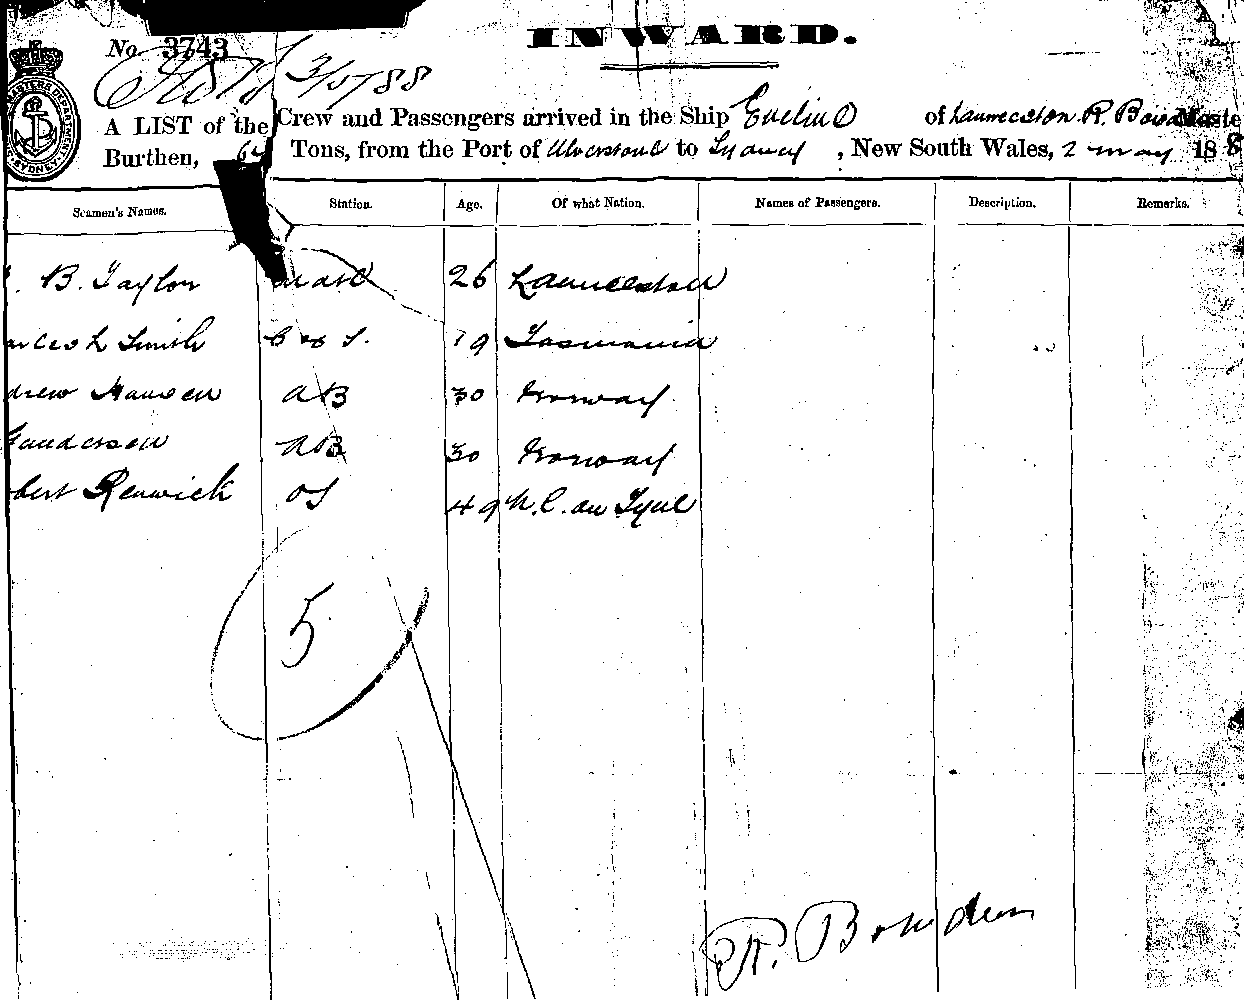 INWARD.
No. 3743
3/5/88
A LIST of the Crew and Passengers arrived in the Ship Eveline of Launceston, R. Bowden Maste
Burthen, 64 Tons, from the Port of Ulverstone to Sydney, New South Wales, 2 May 188
Seamen's Names. Station. Age. Of what Nation. Names of Passengers. Description. Remarks.
B. Taylor Mate 26 Launceston
arles L Smith C & S. 19 Tasmania
drew Hansen AB 30 Norway
Gundersen AB 30 Norway
obert Renwick OS 49 N.C. on Tyne
5
R. Bowden